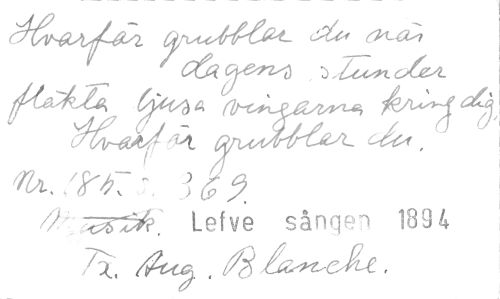 Hvarför grubblar du när
dagens stunder
fläkta ljusa vingarna kring dig,
Hvarför grubblar du.
Nr. 185. s. 369.
Musik. Lefve sången 1894
Tx. Aug. Blanche.